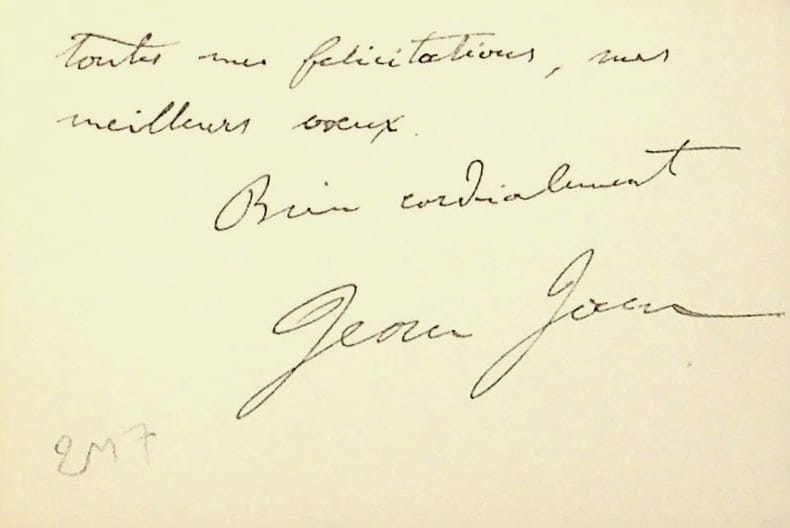 toutes mes felicitations, mes
meilleurs voeux.
Bien cordialement